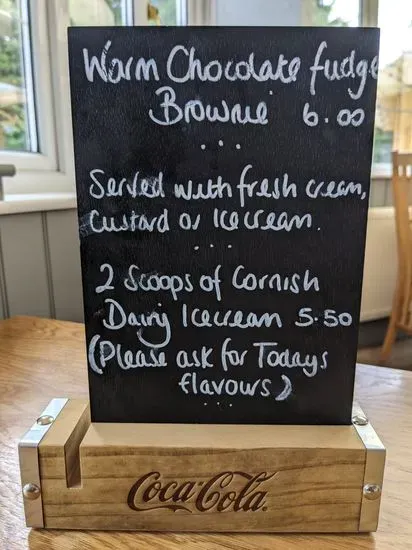 Warm Chocolate fudge
Brownie 6.00
...
Served with fresh cream,
Custard or Icecream.
...
2 Scoops of Cornish
Dairy Icecream 5.50
(Please ask for Todays
flavours)
...
Coca-Cola